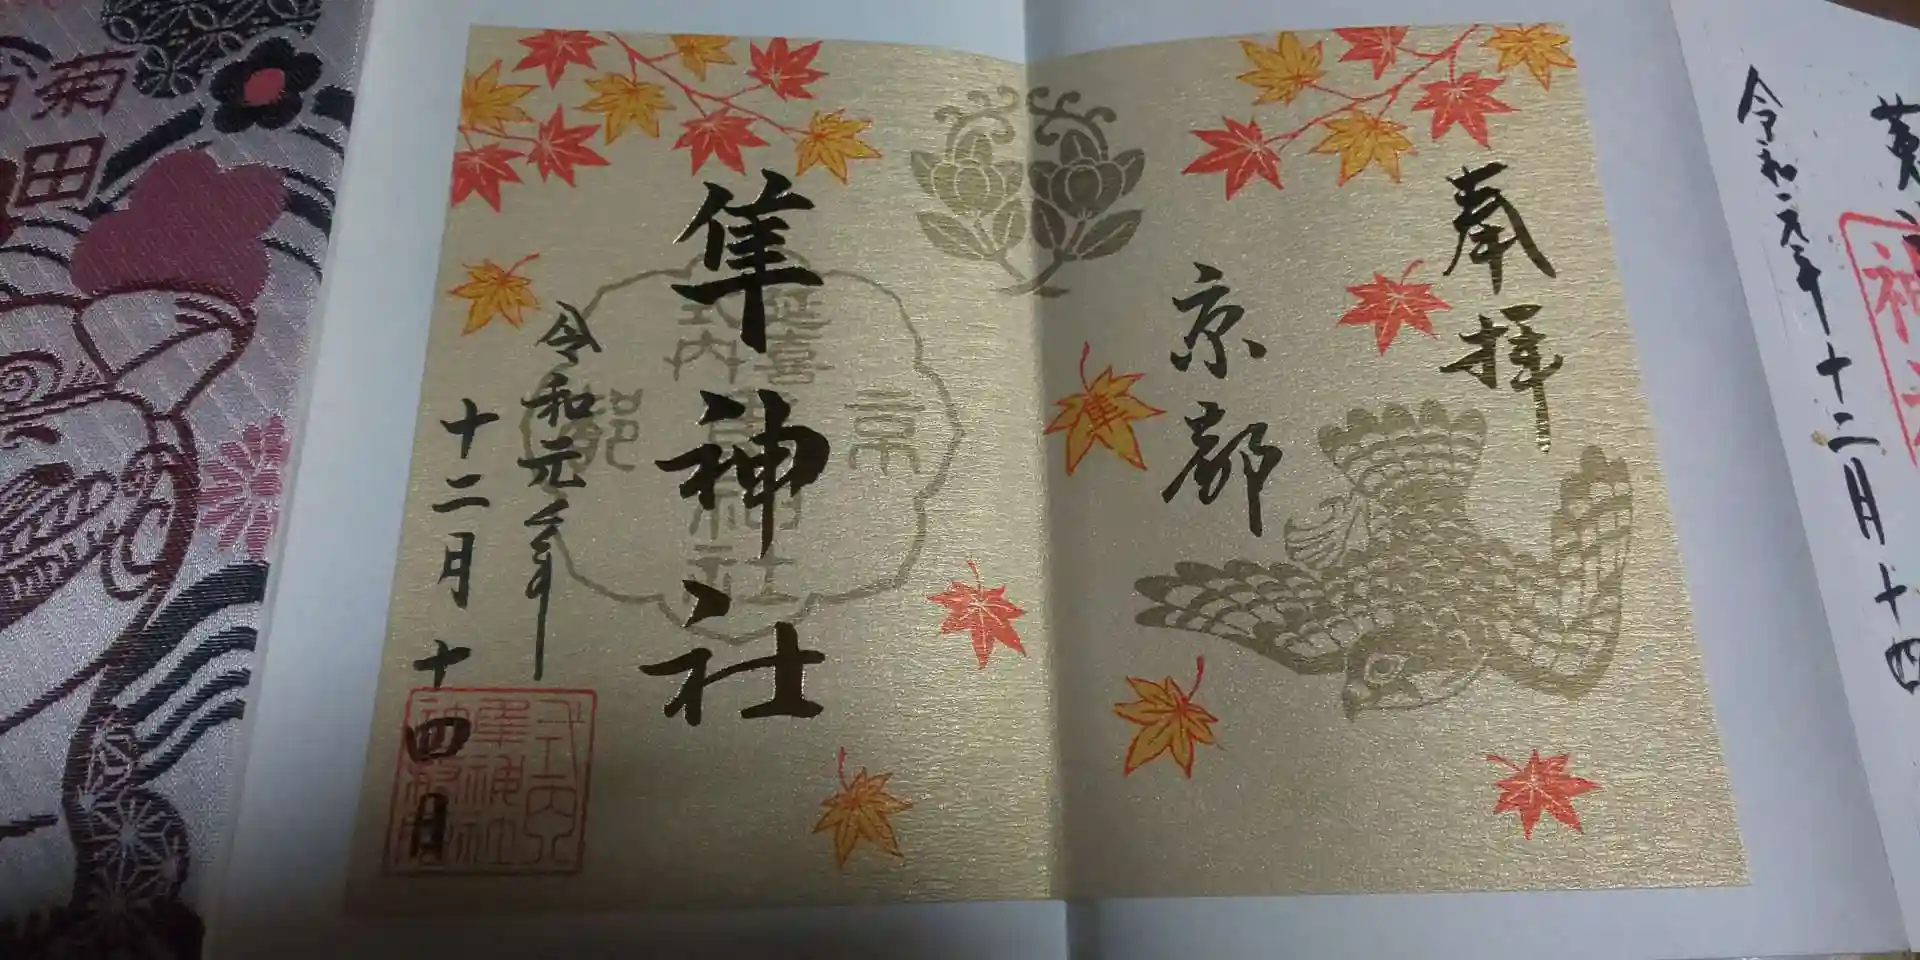 奉拝
京都
隼
京
都
延喜
式内
隼神社
隼神社
令和元年
十二月十四日
式内
隼神社
令和元年十二月十四
神
菊
田